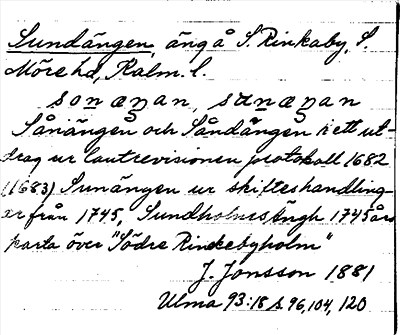 Sundängen, äng å S. Rinkaby, S.
Möre hd, Kalm. l.
sonæŋan, sɯnæŋan
Sånängen och Såndängen i ett ut-
drag ur lantrevisionen protokoll 1682
(1683) Sunängen ur skifteshandling-
ar från 1745, Sundholmesängh 1745 års
karta över "Södre Rindebyholm"
J. Jonsson 1881
Ulma 93:18 s. 96, 104, 120